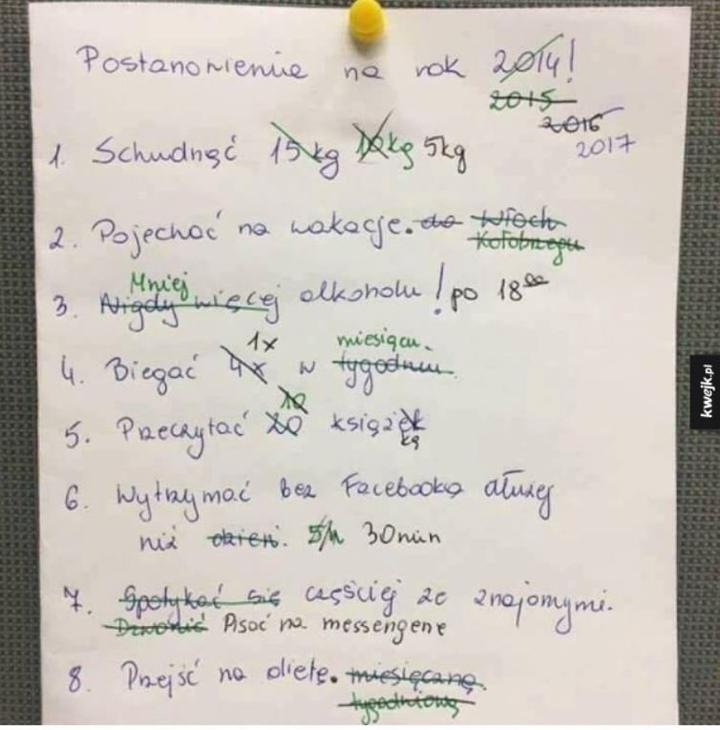 Postanowienie na rok 2014!
2015
2016
2017
1. Schudnąć 15kg 10kg 5kg
2. Pojechać na wakacje. do Włoch
Kołobrzegu
Mniej
3. Nigdy więcej alkoholu! po 18⁰⁰
1x miesiącu.
4. Biegać 4x w tygodniu.
10
5. Przeczytać 20 książek
kę
6. Wytrzymać bez Facebooka dłużej
niż dzień. 5h 30min
7. Spotykać się częściej ze znajomymi.
Dzwonić Pisać na messengerze
8. Przejść na dietę. miesięczną.
tygodniową
kwejk.pl